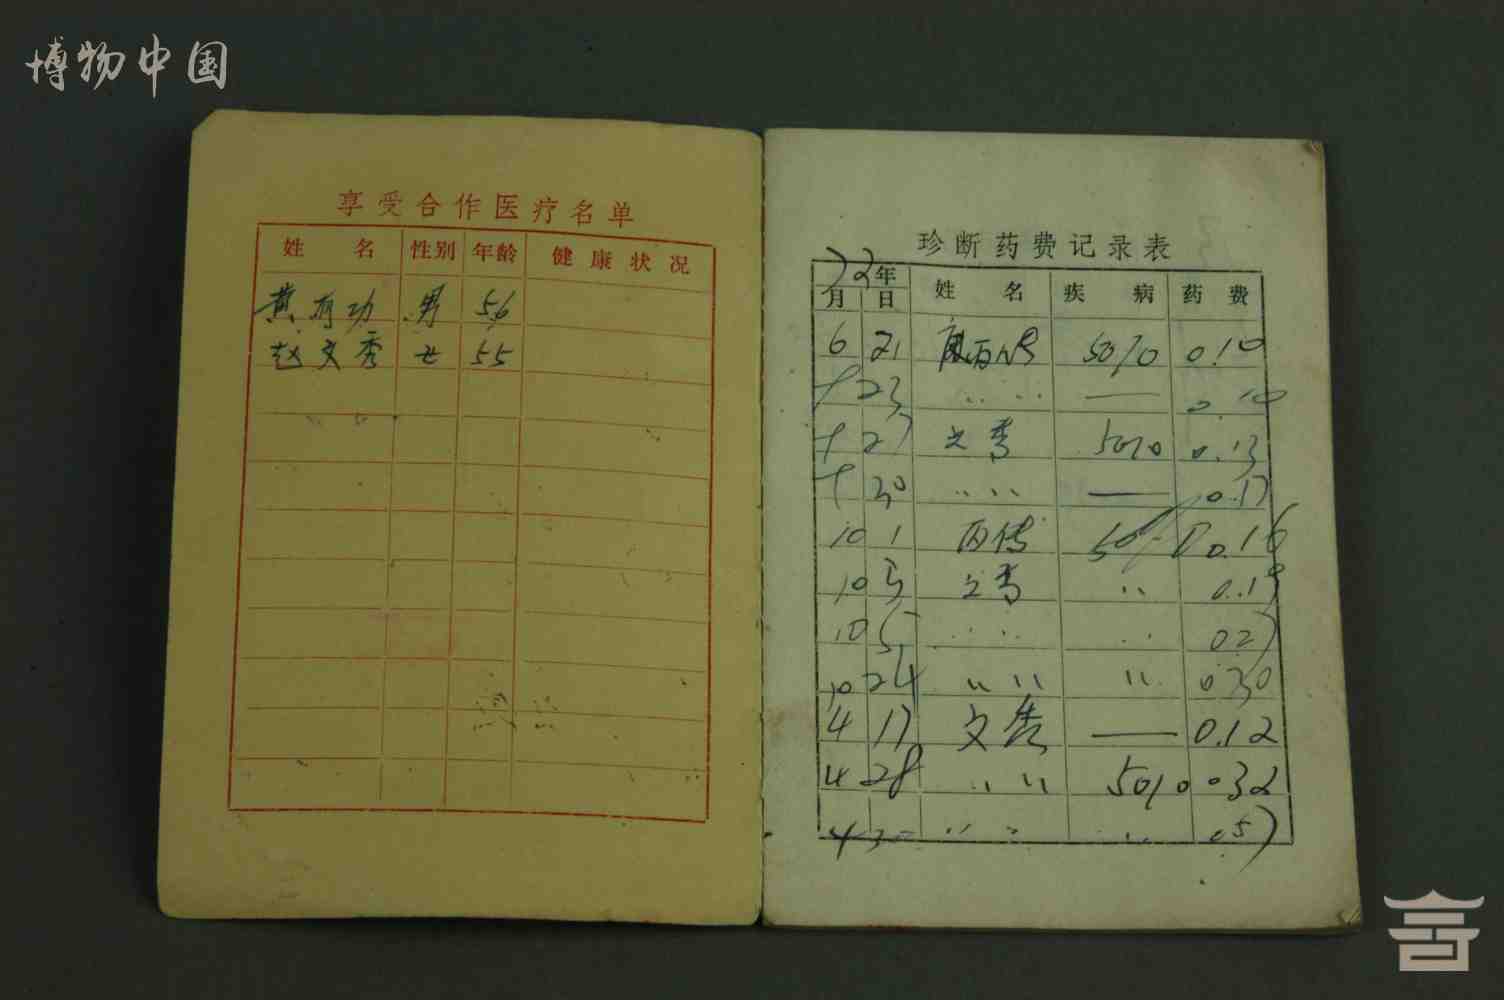 博物中国
享受合作医疗名单
姓 名 性别 年龄 健康状况
黄 功 男 56
赵文秀 女 55
珍断药费记录表
73年
月 日 姓 名 疾 病 药 费
6 21 50% 0.10
〃 23 〃 〃 — 0.10
〃 27 文秀 50% 0.13
〃 30 〃 〃 — 0.17
10 1 50% 0.16
10 3 文秀 〃 0.19
10 5 〃 〃 〃 0.27
10 24 〃 〃 〃 0.30
4 17 文秀 — 0.12
4 28 〃 〃 50% 0.32
4 30 〃 〃 〃 0.57